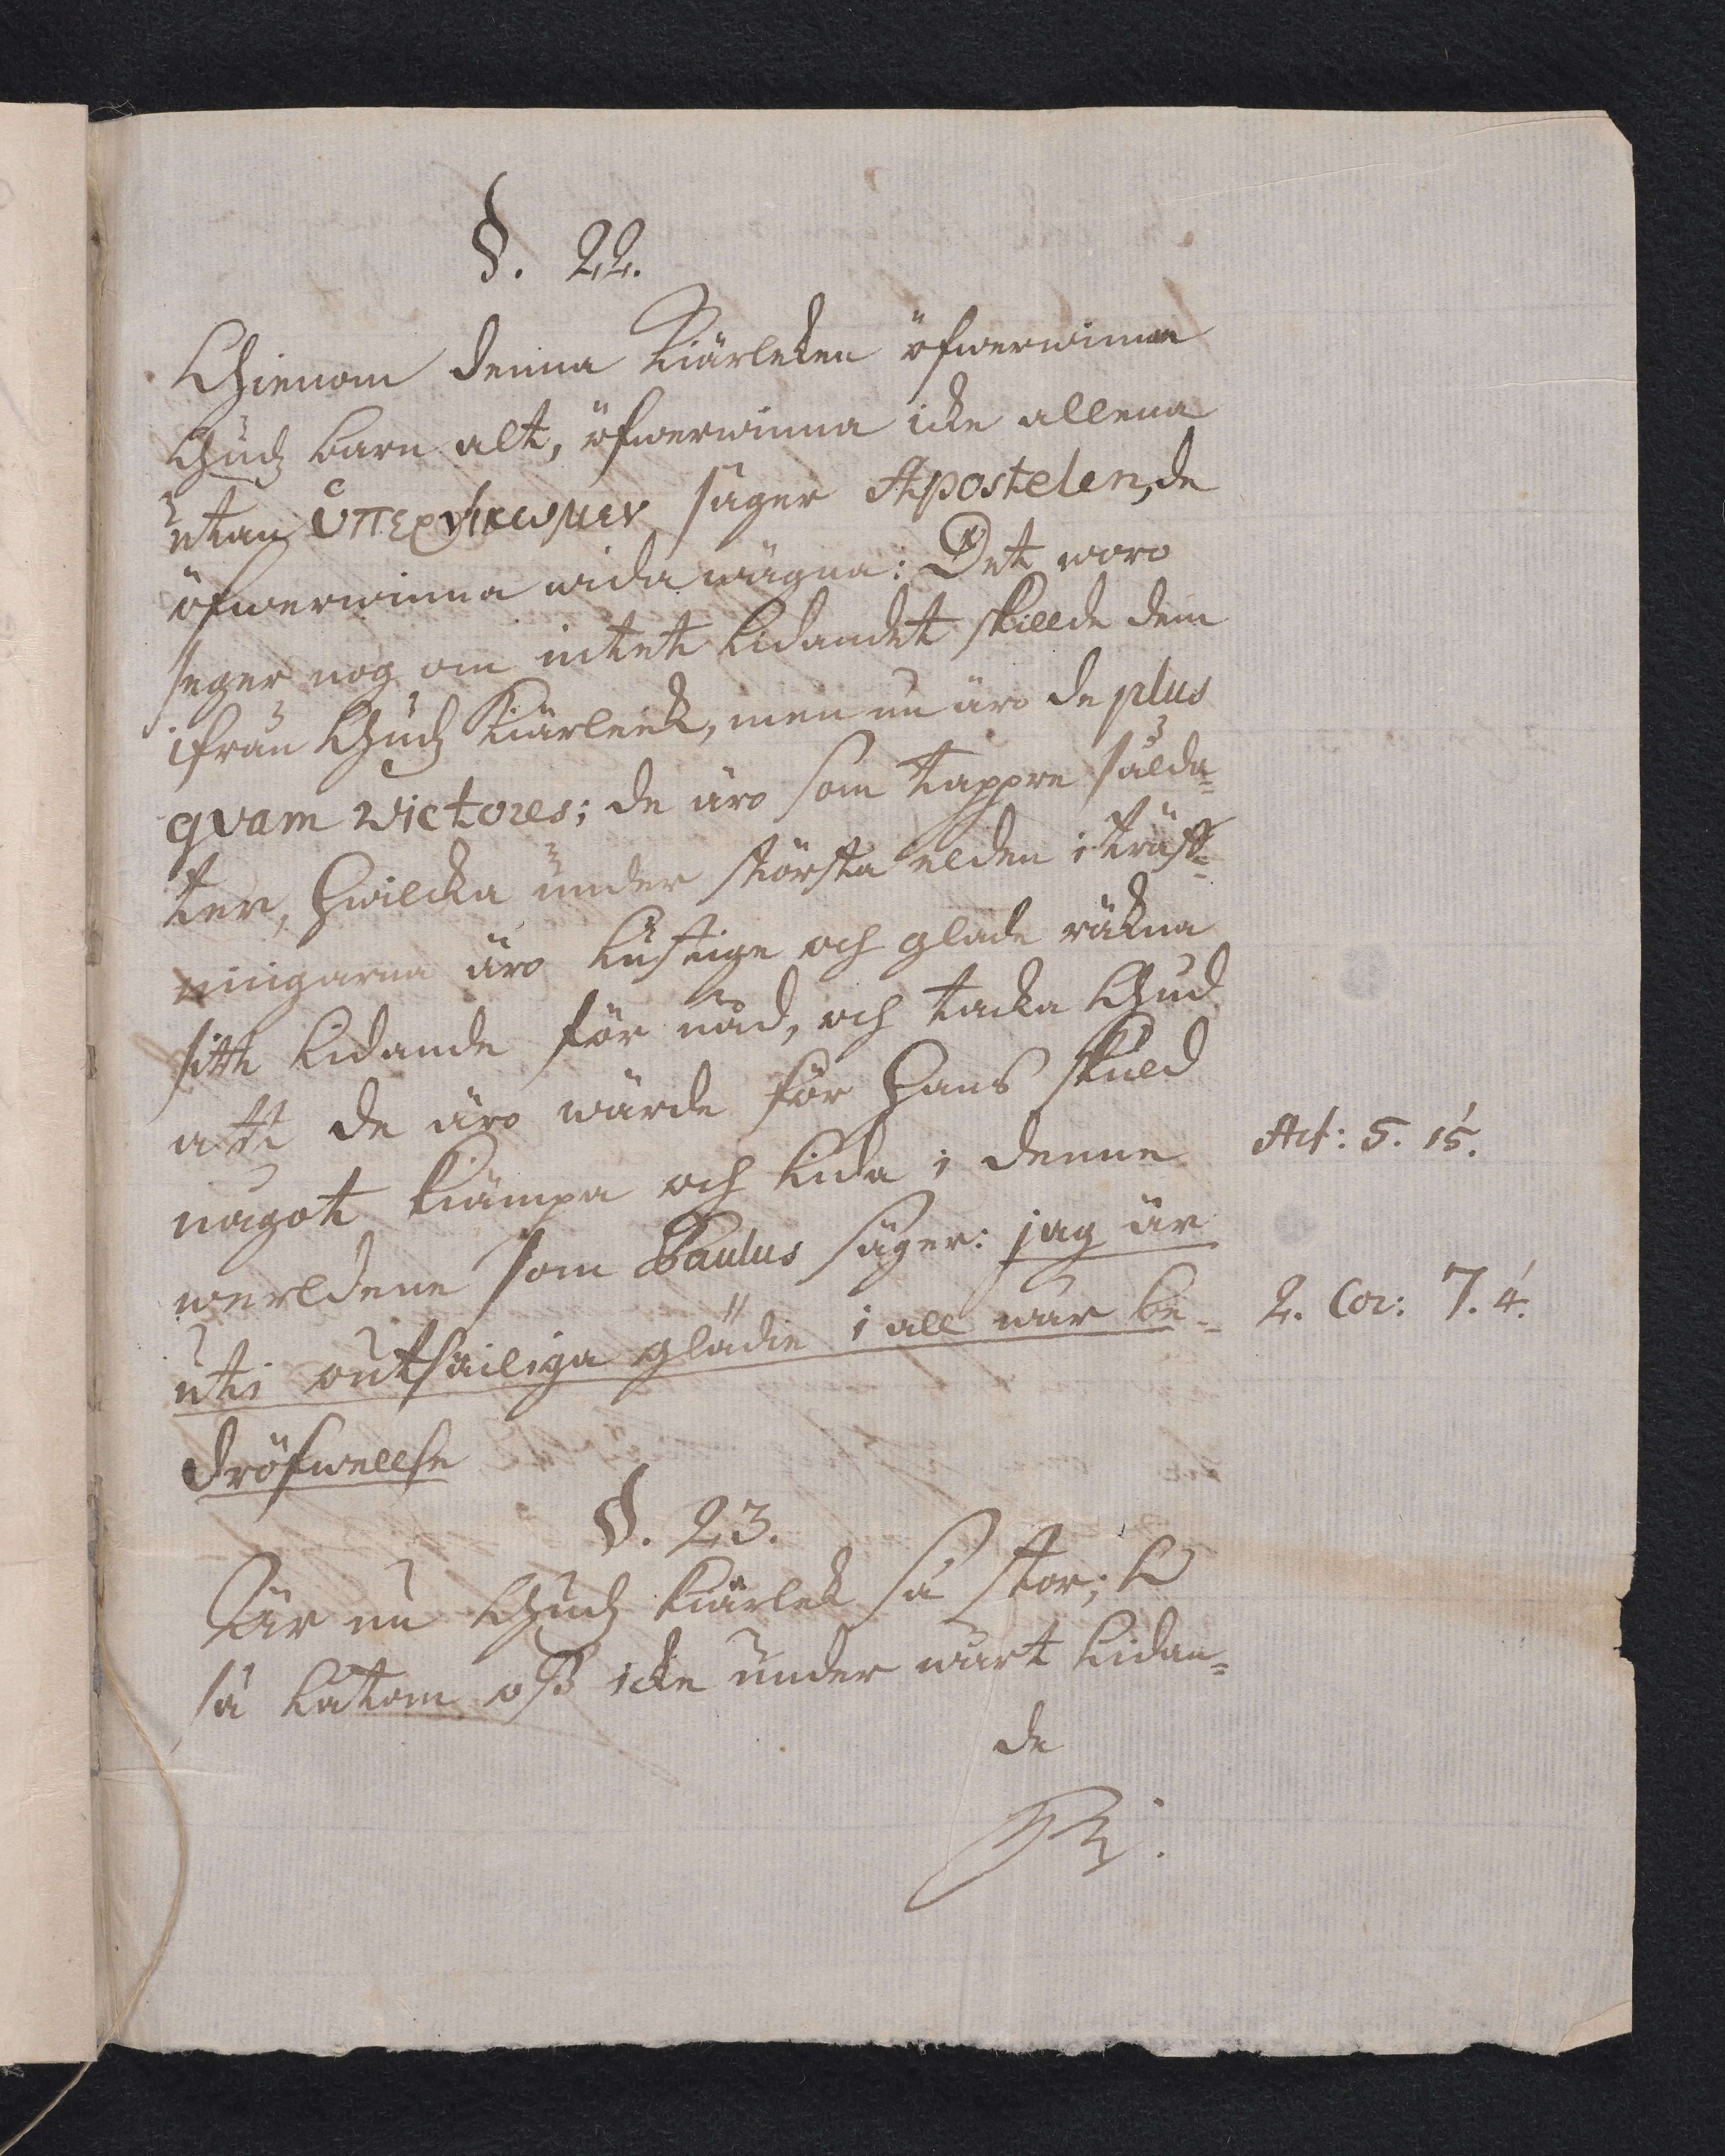 §. 22.
Ghienom denna kiärleken öfwerwinna
Gudz barn alt, öfwerwinna icke allena
utan ὑπερνικωμεν säger Apostelen, de
öfwerwinna wida wägna: Det woro
seger nog om intet lidandet skillde dem
ifrån Gudz kiärleek, men nu äro de plus
qvam victores; de äro som tappre sålda=
ter, hwilcka under största elden i träff=
ningarna äro lustige och glade räkna
sitt lidande för nåd, och tacka Gud
att de äro wärde för hans skuld
något kiämpa och lida i denne
Act: 5. 15.
werldene som Paulus säger: jag är
uti outsäiliga glädie i all wår be=
2. Cor: 7. 4.
dröfwellse
§. 23.
Är nu Gudz kiärlek så stor;
så låtom oss icke under wårt lidan=
de